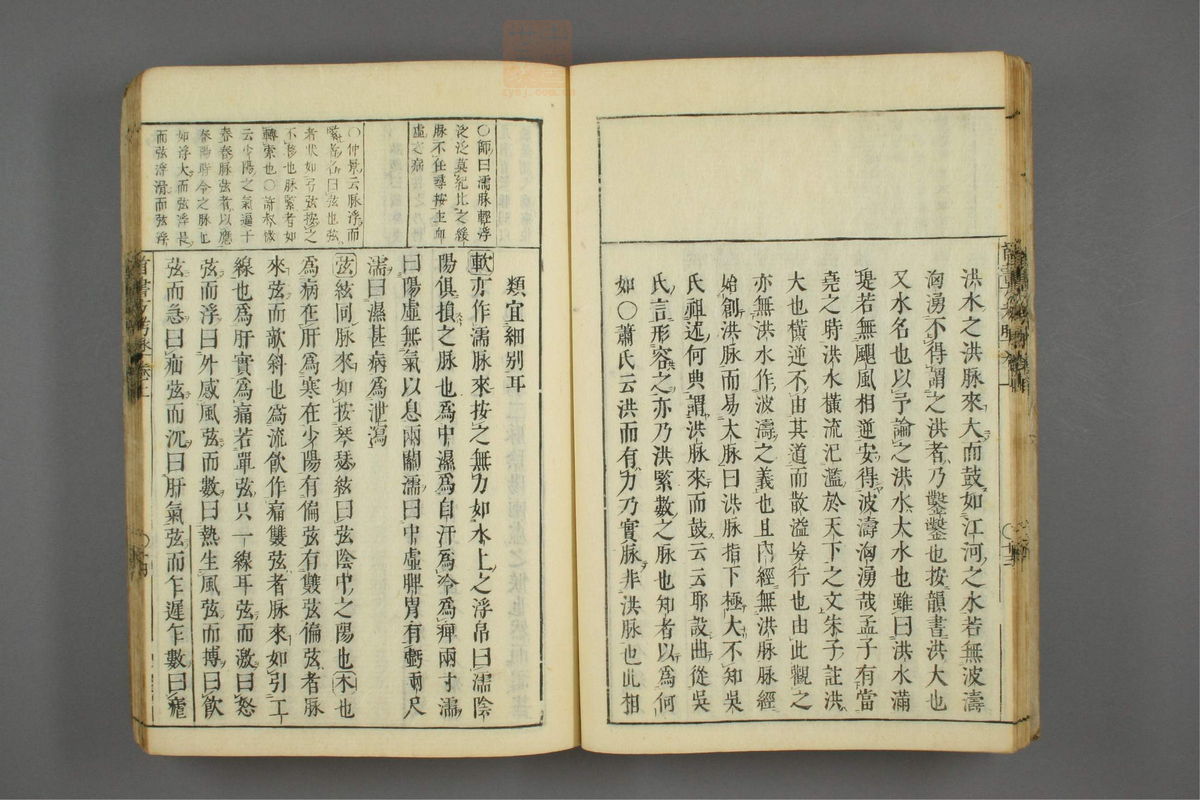 洪水之洪脉來大而鼓如江河之水若無波濤
洶湧不得謂之洪者乃鑿鑿也按韻書洪大也
又水名也以予論之洪水大水也雖曰洪水滿
堤若無颶風相逆安得波濤洶湧哉孟子有當
堯之時洪水橫流氾濫於天下之文朱子註洪
大也橫逆不由其道而散溢妄行也由此觀之
亦無洪水作波濤之義也且內經無洪脉脉經
始創洪脉而易大脉曰洪脉指下極大不知吳
氏祖述何典謂洪脉來而鼓云云耶設曲從吳
氏言形容之亦乃洪緊數之脉也知者以爲何
如○蕭氏云洪而有力乃實脉非洪脉也此相
○師曰濡脉輕浮
泛泛莫紀比之緩
脉不任尋按主血
虛之病
○仲景云脉浮而
緊者名曰弦也弦
者狀如弓弦按之
不移也脉緊者如
轉索也○許叔微
云少陽之氣通于
春春脉弦者以應
春陽時令之脉也
如浮大而弦浮長
而弦浮滑而弦浮
類宜細別耳
軟亦作濡脉來按之無力如水上之浮帛曰濡陰
陽俱損之脉也爲中濕爲自汗爲冷爲痺兩寸濡
曰陽虛無氣以息兩關濡曰中虛脾胃有虧兩尺
濡曰濕甚病爲泄瀉
弦絃同脉來如按琴瑟絃曰弦陰中之陽也木也
爲病在肝爲寒在少陽有偏弦有雙弦偏弦者脉
來弦而欹斜也爲流飲作痛雙弦者脉來如引二
線也爲肝實爲痛若單弦只一線耳弦而激曰怒
弦而浮曰外感風弦而數曰熱生風弦而搏曰飲
弦而急曰疝弦而沉曰肝氣弦而乍遲乍數曰瘧